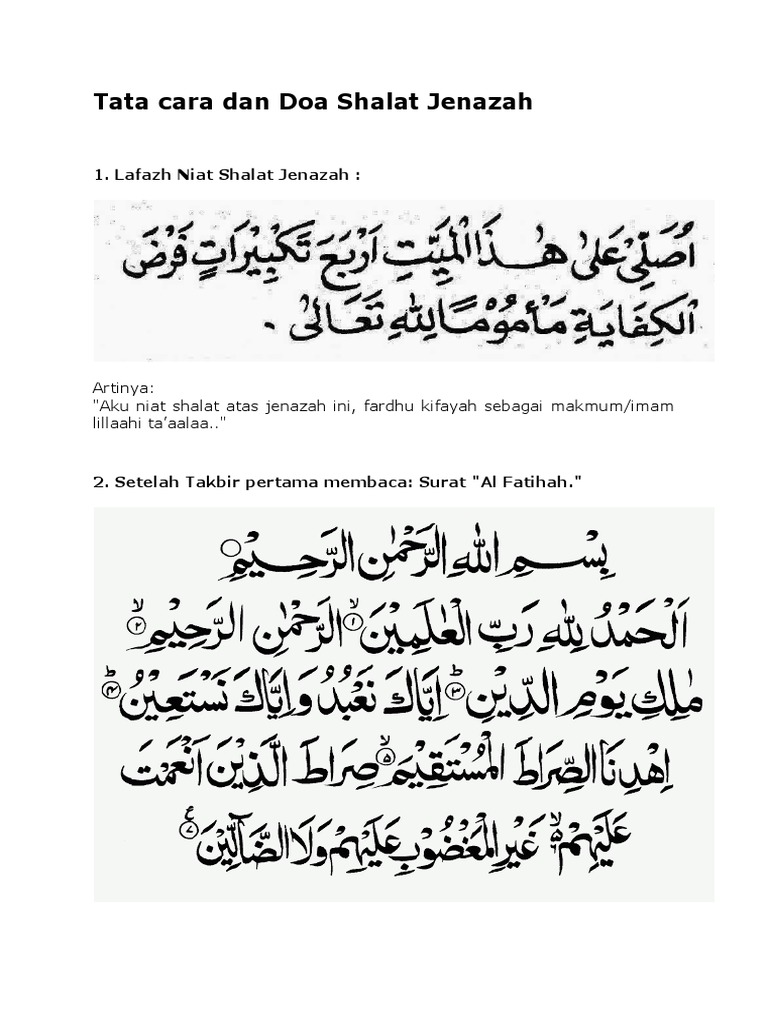 Tata cara dan Doa Shalat Jenazah
1. Lafazh Niat Shalat Jenazah :
اُصَلِّيْ عَلٰى هٰذَا الْمَيِّتِ اَرْبَعَ تَكْبِيْرَاتٍ فَرْضَ
الْكِفَايَةِ مَأْمُوْمًا لِلّٰهِ تَعَالٰى .
Artinya:
"Aku niat shalat atas jenazah ini, fardhu kifayah sebagai makmum/imam
lillaahi ta’aalaa.."
2. Setelah Takbir pertama membaca: Surat "Al Fatihah."
بِسْمِ اللهِ الرَّحْمٰنِ الرَّحِيْمِ ○
اَلْحَمْدُ لِلّٰهِ رَبِّ الْعٰلَمِيْنَۙ ١ الرَّحْمٰنِ الرَّحِيْمِۙ ٢
مٰلِكِ يَوْمِ الدِّيْنِۗ ٣ اِيَّاكَ نَعْبُدُ وَاِيَّاكَ نَسْتَعِيْنُۗ ۴
اِهْدِنَا الصِّرَاطَ الْمُسْتَقِيْمَۙ ۵ صِرَاطَ الَّذِيْنَ اَنْعَمْتَ
عَلَيْهِمْۙ غَيْرِ الْمَغْضُوْبِ عَلَيْهِمْ وَلَا الضَّآلِّيْنَ ࣖ ٧